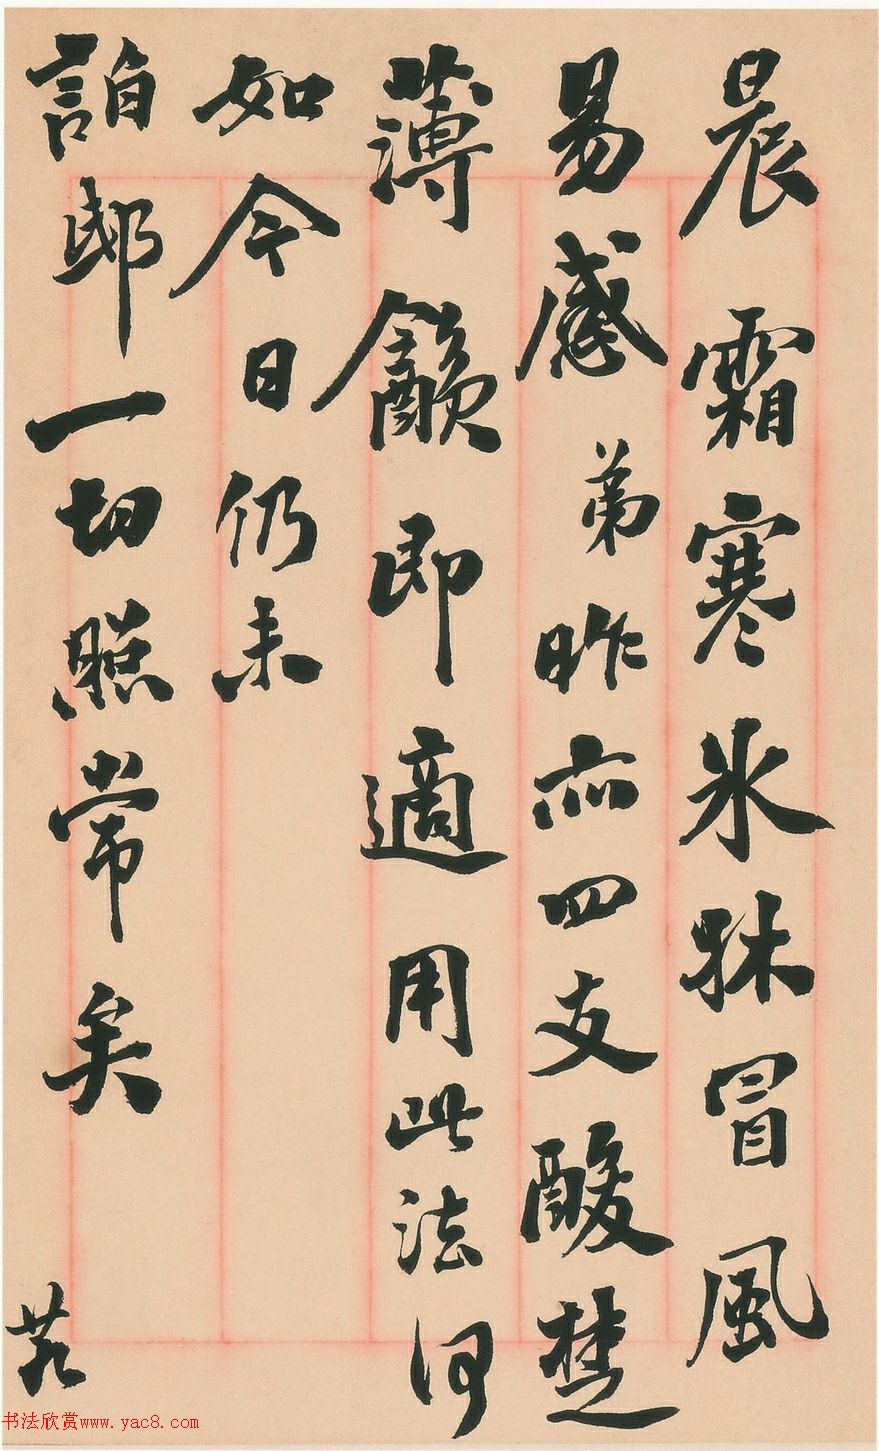 晨霜寒冰牀冒風
易感弟昨亦四支酸楚
薄㱃即適用此法何
如今日仍未
詣邸一切照常矣
书法欣赏www.yac8.com